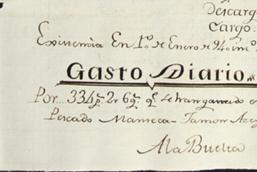 Descarg
Cargo.
Existencia En 1º de Enero de
Gasto Diario
Por... 334 2r 6 q.e se han gastado e
Pescado Manteca Jamon
A la Buelta